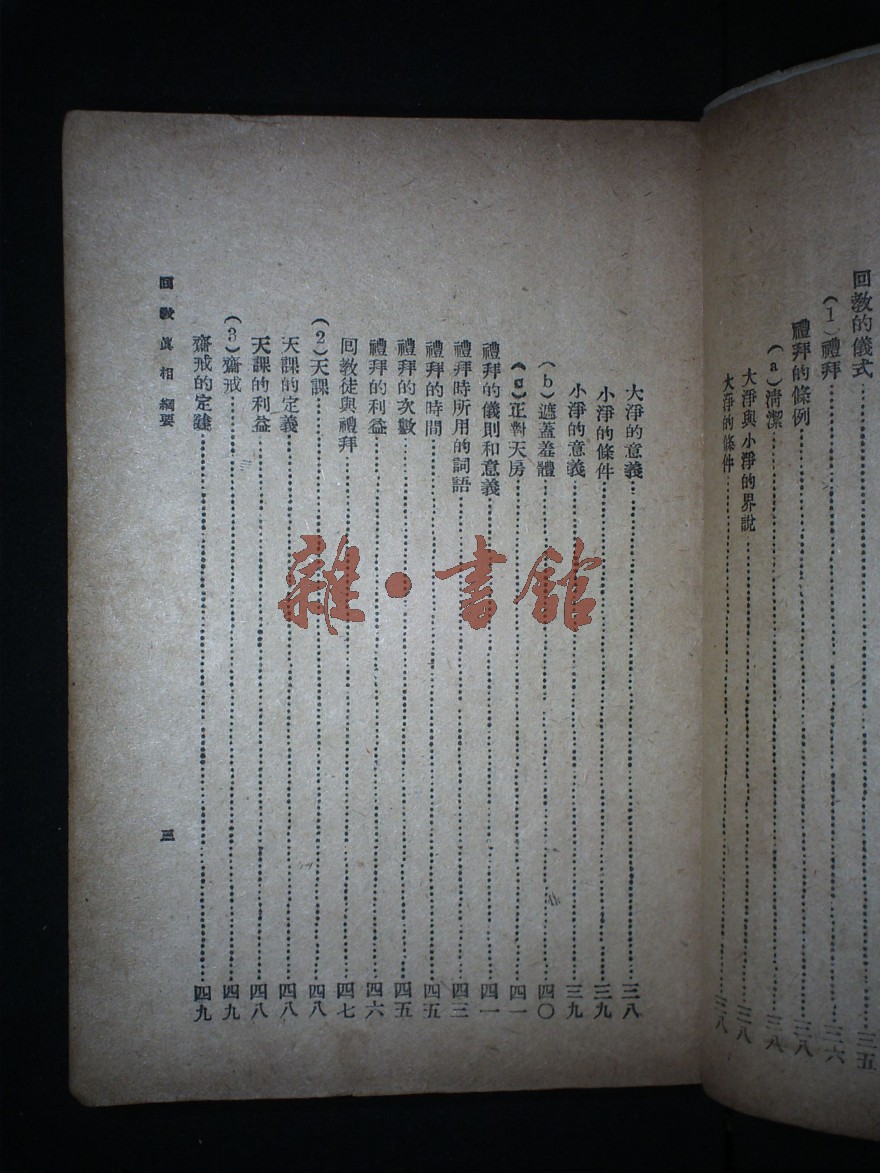 回教的儀式……三五
(1)禮拜……三六
禮拜的條例……三八
(a)清潔……三八
大淨與小淨的界說……三八
大淨的條件……三八
大淨的意義……三八
小淨的條件……三九
小淨的意義……三九
(b)遮蓋羞體……四〇
(c)正對天房……四一
禮拜的儀則和意義……四一
禮拜時所用的詞語……四三
禮拜的時間……四五
禮拜的次數……四五
禮拜的利益……四六
回教徒與禮拜……四七
(2)天課……四八
天課的定義……四八
天課的利益……四八
(3)齋戒……四九
齋戒的定義……四九
回教眞相 綱要
三
雜·書館